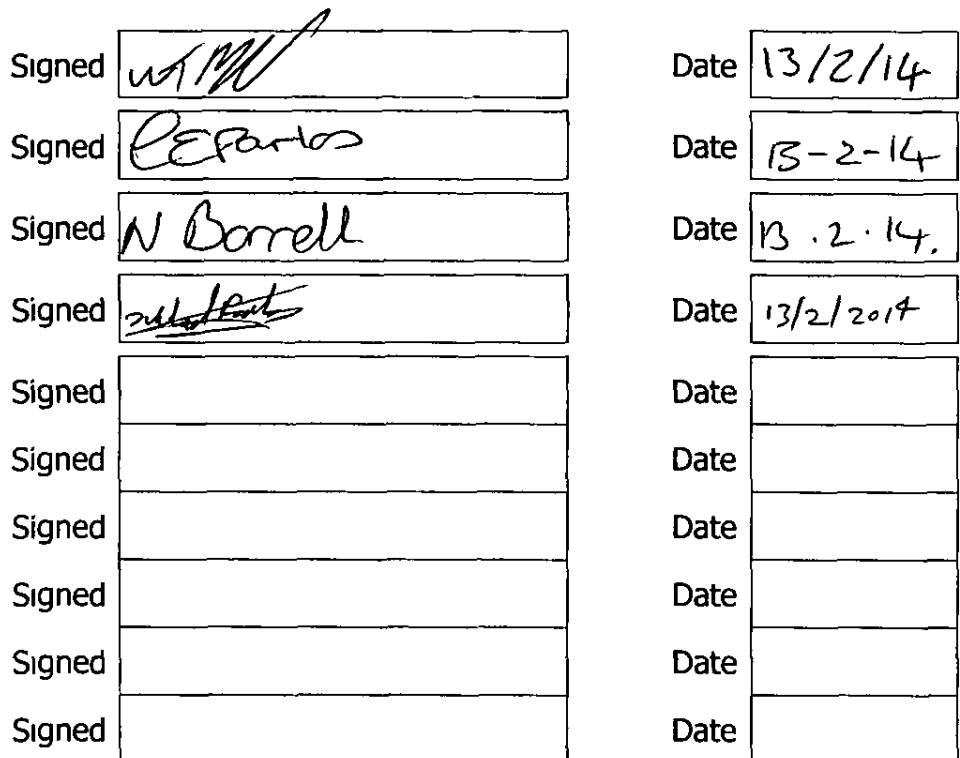 Signed Date 13/2/14
Signed Date 13-2-14
Signed N Borrell Date 13.2.14.
Signed Date 13/2/2014
Signed Date
Signed Date
Signed Date
Signed Date
Signed Date
Signed Date